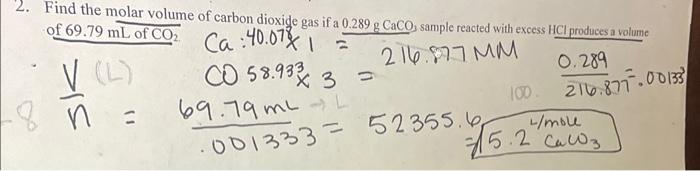 2. Find the molar volume of carbon dioxide gas if a 0.289 g CaCO3 sample reacted with excess HCl produces a volume
of 69.79 mL of CO2
Ca : 40.078 x 1 =
CO 58.933 x 3 =
216.877 MM
0.289
216.877 = .00133
100.
V (L)
n
-8
= 69.79 mL → L
.001333
= 52355.6
= 15.2 L/mole
CaCO3